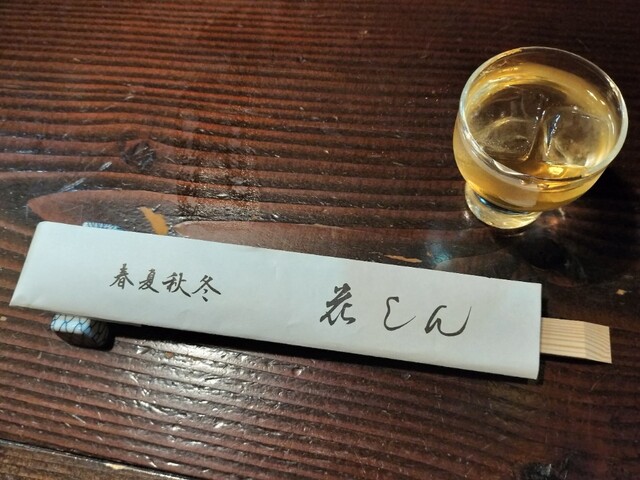 春夏秋冬 花しん